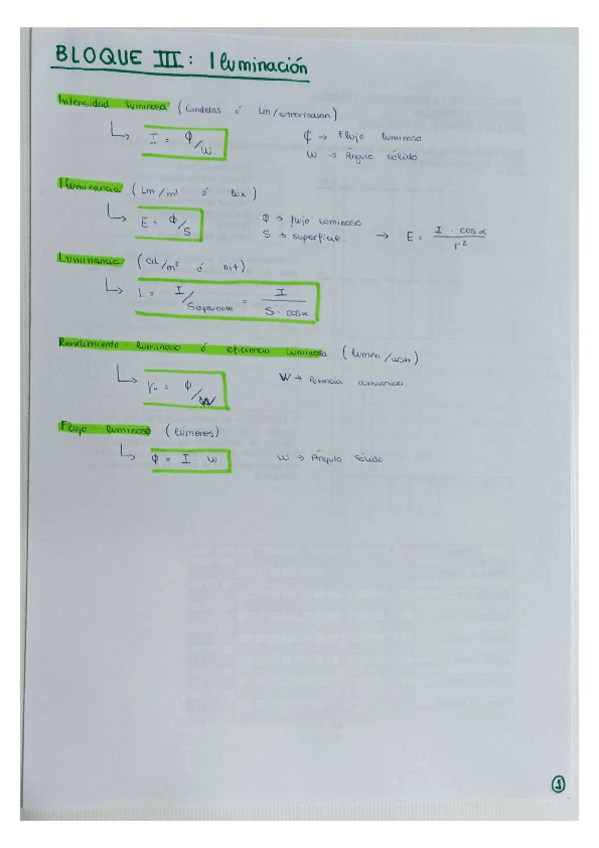 BLOQUE III: Iluminación
Intensidad luminosa (Candelas ó Lm/estereorradian)
I = Φ/W
Φ → Flujo luminoso
W → Ángulo sólido.
Iluminancia (Lm/m² ó lux)
E = Φ/S
Φ → flujo luminoso
S → superficie. → E = I · cosα / r²
Luminancia (cd/m² ó nit)
L = I/Saparente = I / S · cosα
Rendimiento luminoso ó eficiencia luminosa (lumen/watt)
= Φ/W
W → Potencia consumida
Flujo luminoso (lúmenes)
Φ = I · W.
W → Ángulo sólido
1